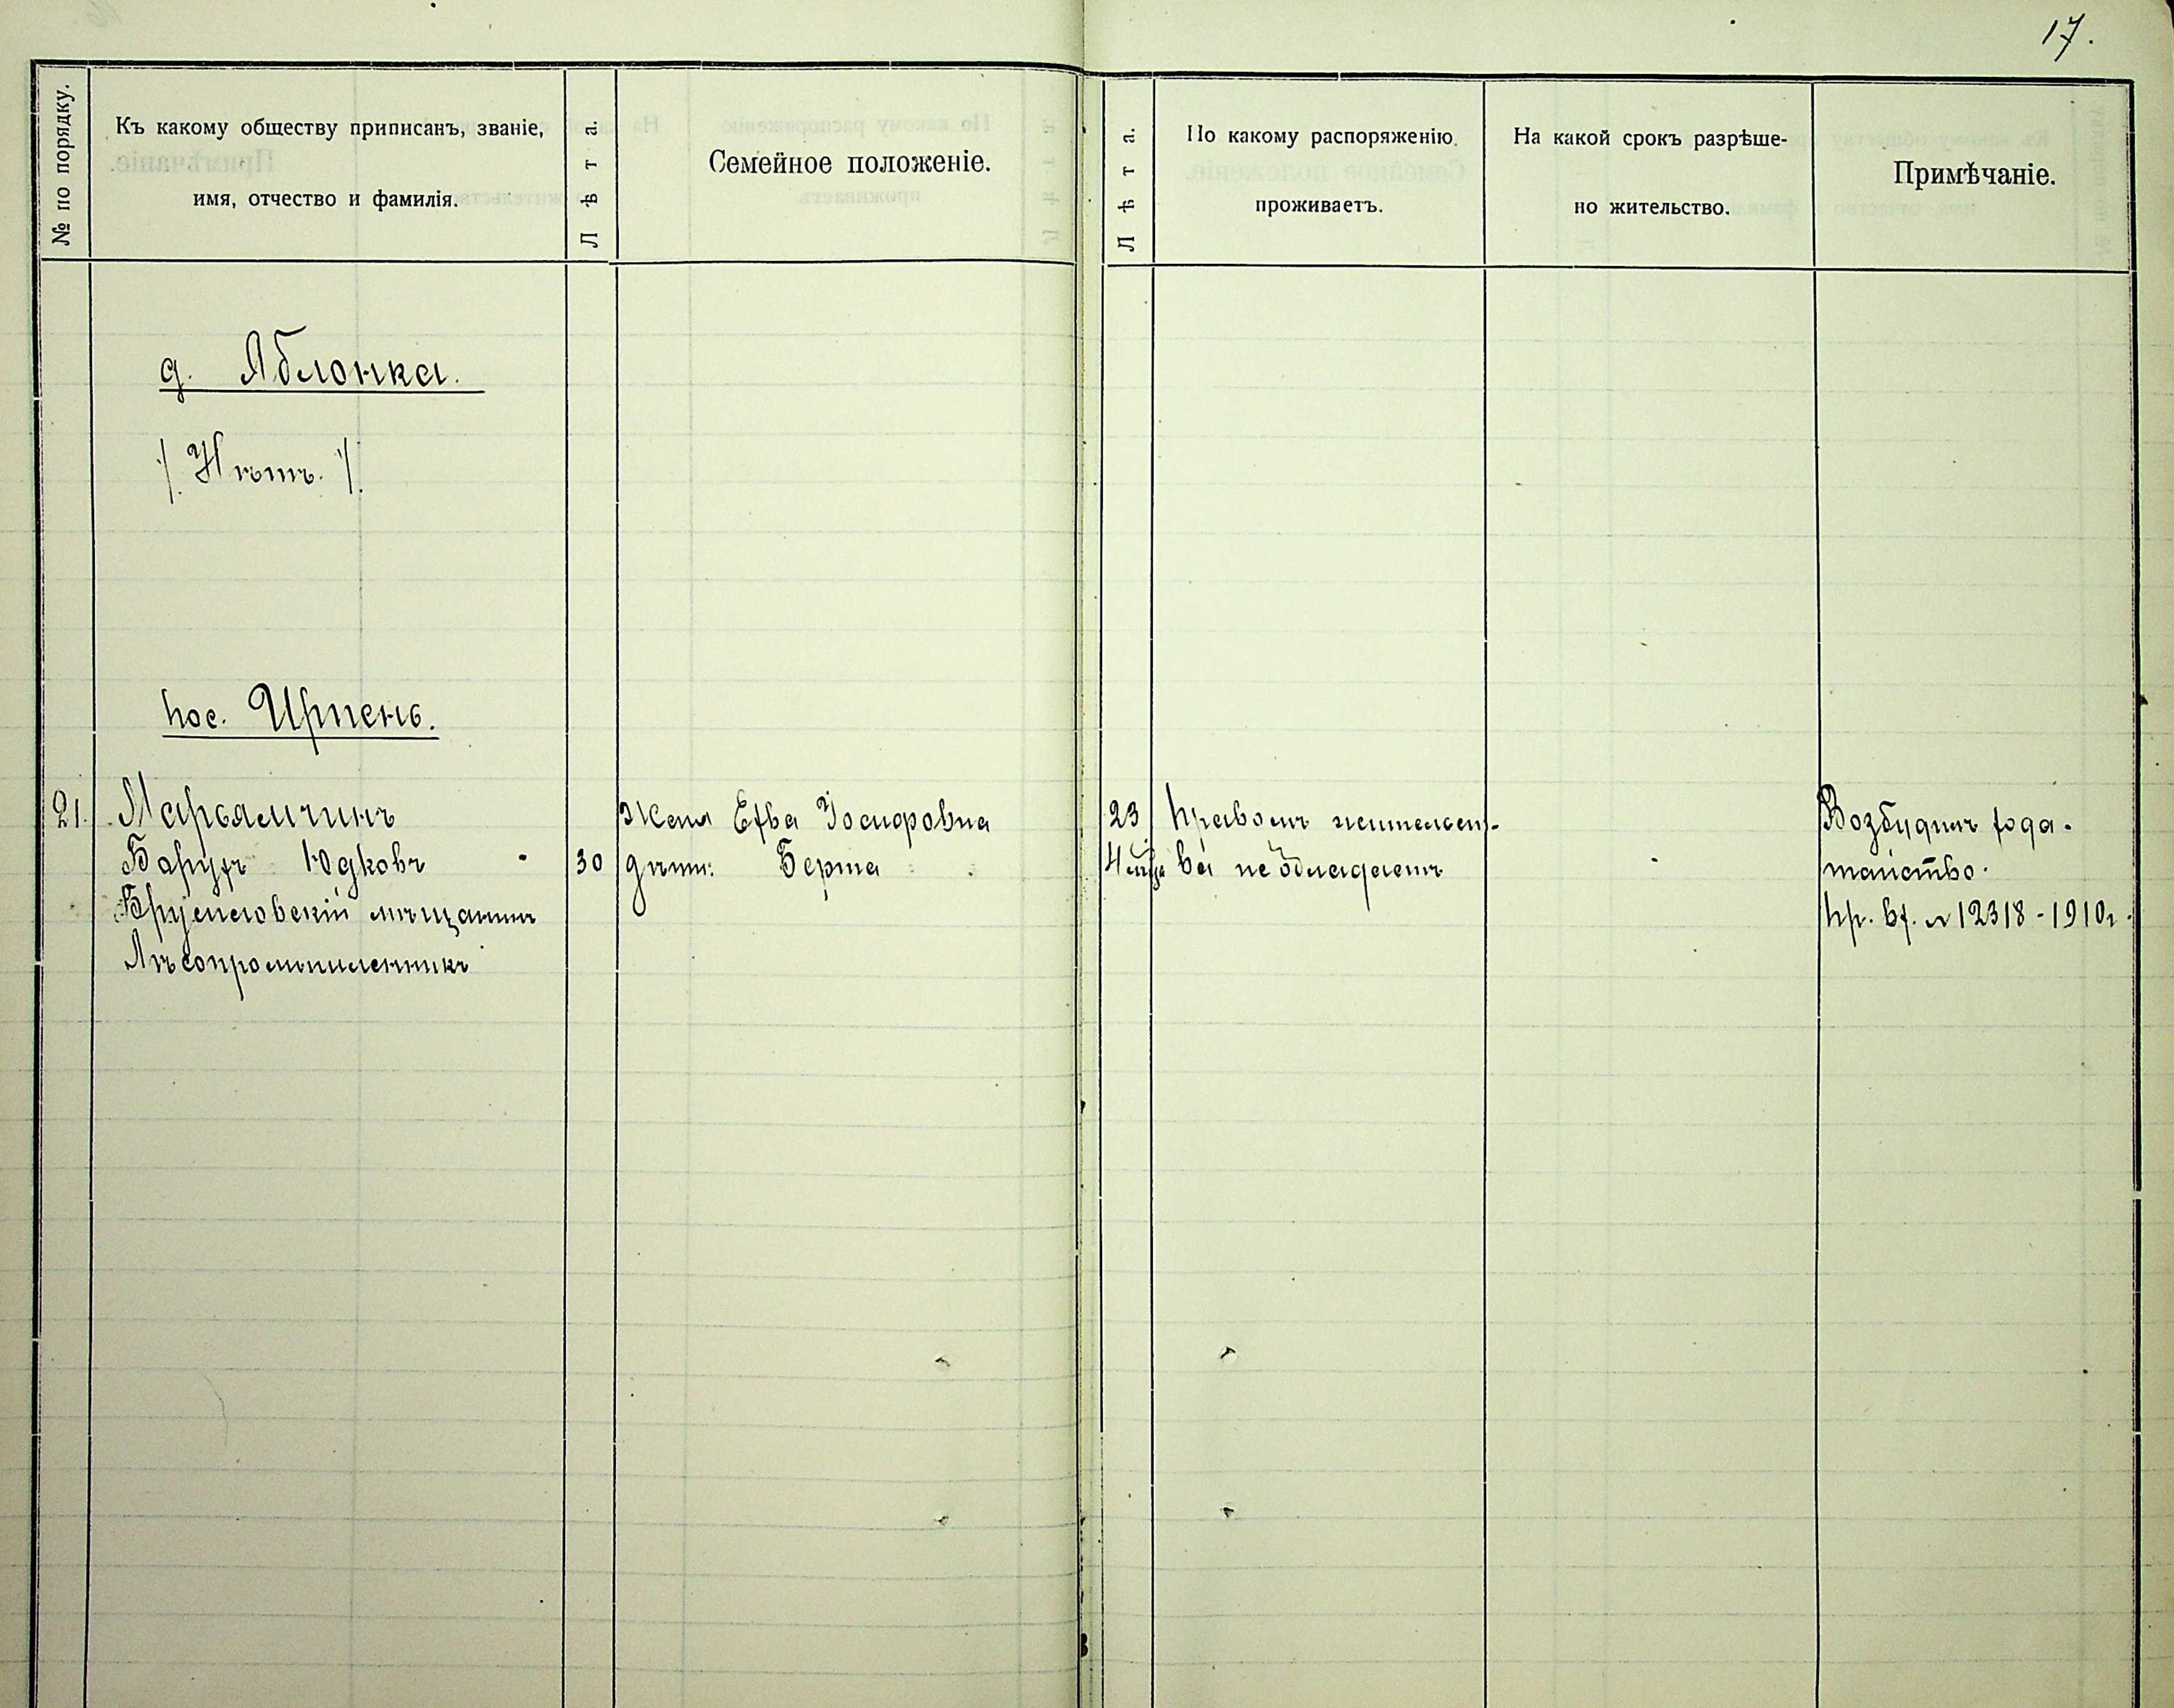 17.
№ по порядку.
Къ какому обществу приписанъ, званіе,
имя, отчество и фамилія.
Лѣта.
Семейное положеніе.
Лѣта.
По какому распоряженію
проживаетъ.
На какой срокъ разрѣше-
но жительство.
Примѣчаніе.
д. Яблонка.
/. Нѣтъ. /.
пос. Ирпень.
21. Марьямчикъ
Барухъ Юдковъ 30
Брусиловскій мѣщанинъ
Лѣсопромышленникъ
Жена Ехва Іосифовна 23
дѣти: Берта 4 мѣс
Правомъ жительст-
ва не обладаетъ
Возбудилъ хода-
тайство.
Пр. вх. № 12318-1910г.